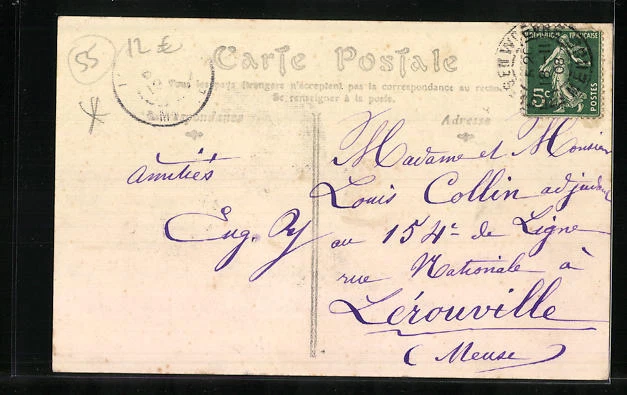 55
12 €
Carte Postale
Tous les pays étrangers n'acceptent pas la correspondance au recto
Se renseigner à la poste.
Correspondance
Adresse
RÉPUBLIQUE FRANÇAISE
5c
POSTES
Amitiés
Eug. Py
Madame et Monsieur
Louis Collin adjudant
au 154e de Ligne
rue Nationale à
Lérouville
(Meuse)